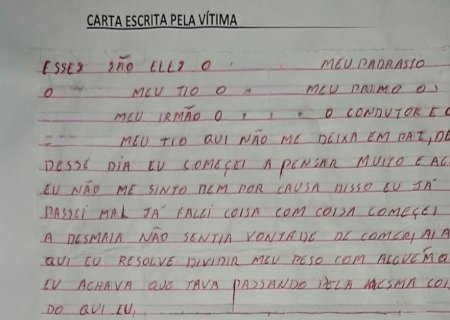 CARTA ESCRITA PELA VÍTIMA
ESSES SÃO ELLES O MEU PADRASTO
O MEU TIO O MEU PRIMO OS
MEU IRMÃO O O CONDUTOR E O
MEU TIO QUI NÃO ME DEIXA EM PAZ, DE
DESSE DIA EU COMEÇEI A PENSAR MUITO E AC
EU NÃO ME SINTO BEM POR CAUSA DISSO EU JÁ
PASSEI MAL JÁ FALEI COISA COM COISA COMEÇEI
A DESMAIA NÃO SENTIA VONTADE DE COMER, AI A
QUI EU RESOLVE DIVIDIR MEU PESO COM ALGUÉM Q
EU ACHAVA QUE TAVA PASSANDO PELA MESMA COI
DO QUI EU,